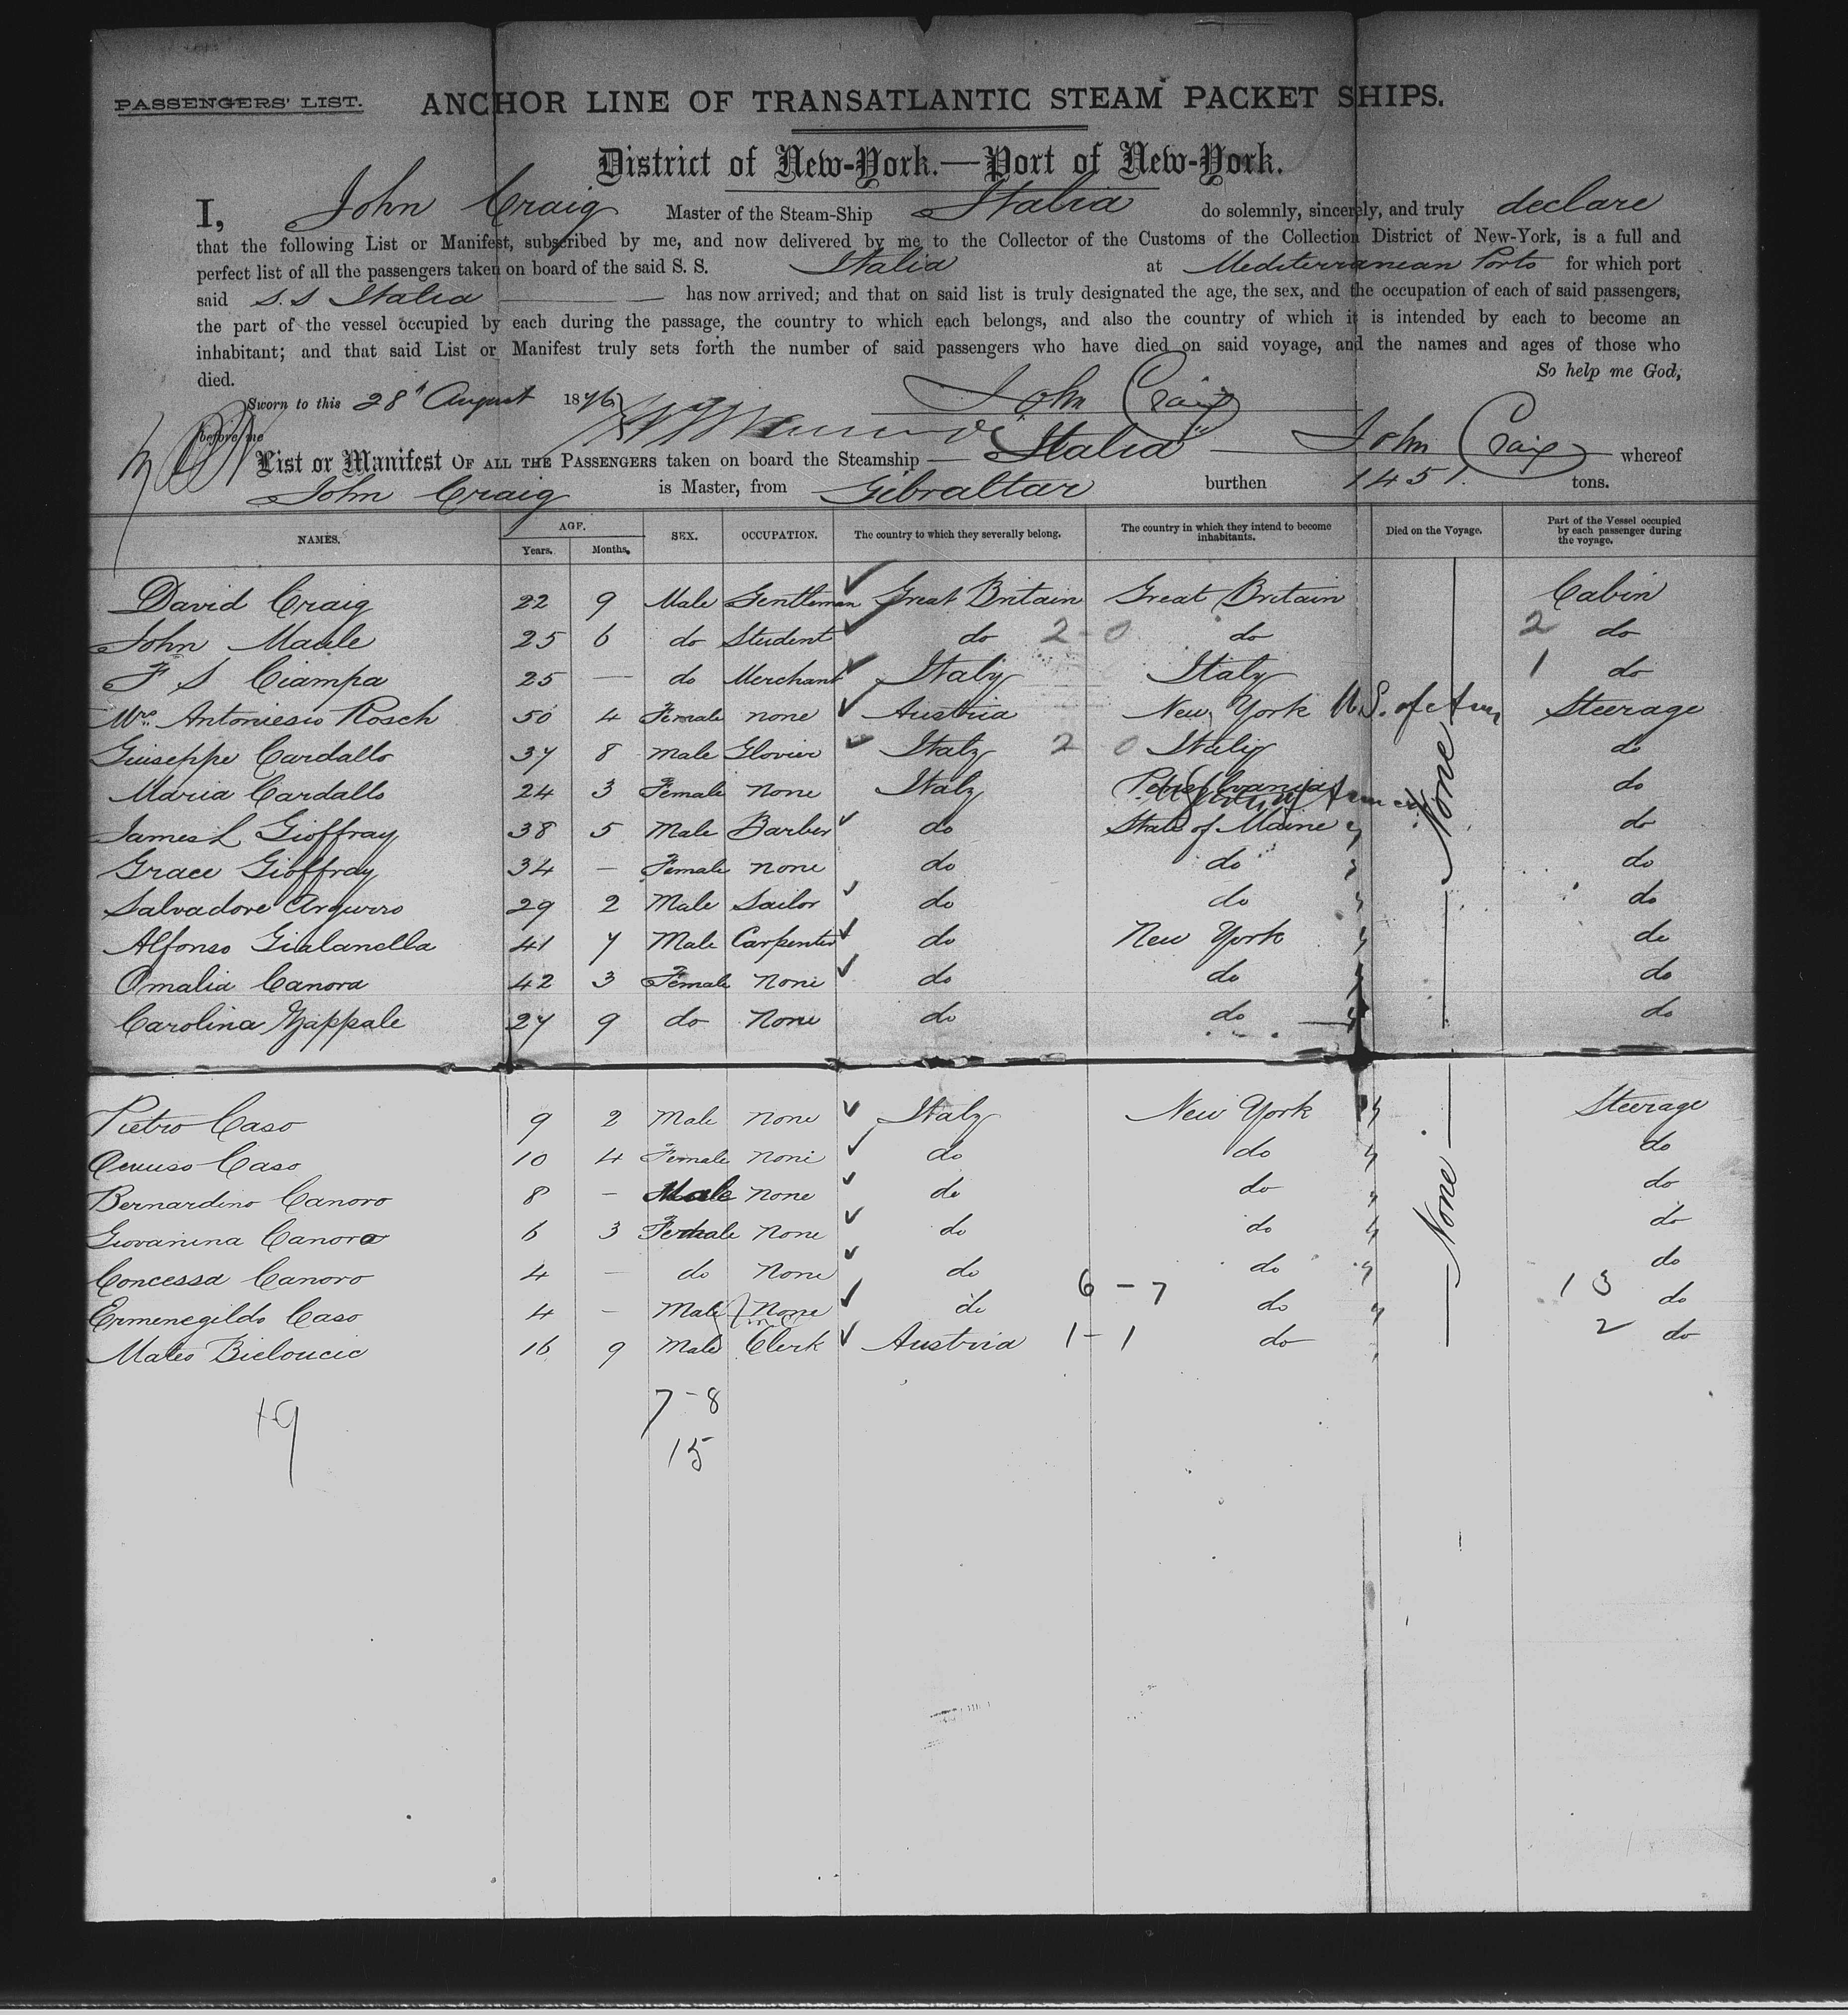 PASSENGERS' LIST. ANCHOR LINE OF TRANSATLANTIC STEAM PACKET SHIPS.
District of New-York.—Port of New-York.
I, John Craig Master of the Steam-Ship Italia do solemnly, sincerely, and truly declare
that the following List or Manifest, subscribed by me, and now delivered by me to the Collector of the Customs of the Collection District of New-York, is a full and
perfect list of all the passengers taken on board of the said S. S. Italia at Mediterranean Ports for which port
said S.S Italia has now arrived; and that on said list is truly designated the age, the sex, and the occupation of each of said passengers,
the part of the vessel occupied by each during the passage, the country to which each belongs, and also the country of which it is intended by each to become an
inhabitant; and that said List or Manifest truly sets forth the number of said passengers who have died on said voyage, and the names and ages of those who
died. So help me God,
Sworn to this 28th August 1876 John Craig
before me
List or Manifest OF ALL THE PASSENGERS taken on board the Steamship Italia John Craig whereof
John Craig is Master, from Gibraltar burthen 1451. tons.
NAMES. AGE. Years. Months. SEX. OCCUPATION. The country to which they severally belong. The country in which they intend to become inhabitants. Died on the Voyage. Part of the Vessel occupied by each passenger during the voyage.
David Craig 22 9 Male Gentleman Great Britain Great Britain Cabin
John Maule 25 6 do Student do 2-0 do 2 do
F S Ciampa 25 — do Merchant Italy Italy 1 do
Mrs. Antoniesio Rosch 50 4 Female none Austria New York U.S. of Am Steerage
Giuseppe Cardallo 37 8 male Glovier Italy 2 0 Italy do
Maria Cardallo 24 3 Female none Italy do
James L Gioffray 38 5 Male Barber do State of Maine " None do
Grace Gioffray 34 — Female none do do " do
Salvadore 29 2 Male Sailor do do " do
Alfonso Gialanella 41 7 Male Carpenter do New York " do
Omalia Canora 42 3 Female none do do " do
Carolina Zappale 27 9 do none do do " do
Pietro Caso 9 2 Male none Italy New York " Steerage
Caso 10 4 Female none do do " do
Bernardino Canoro 8 – Male none do do " do
Giovanina Canora 6 3 Female none do do " None do
Concessa Canoro 4 — do none do do " do
Ermenegildo Caso 4 – Male none do 6-7 do " 13 do
Mateo Bieloucic 16 9 Male Clerk Austria 1-1 do " 2 do
19 7-8
15